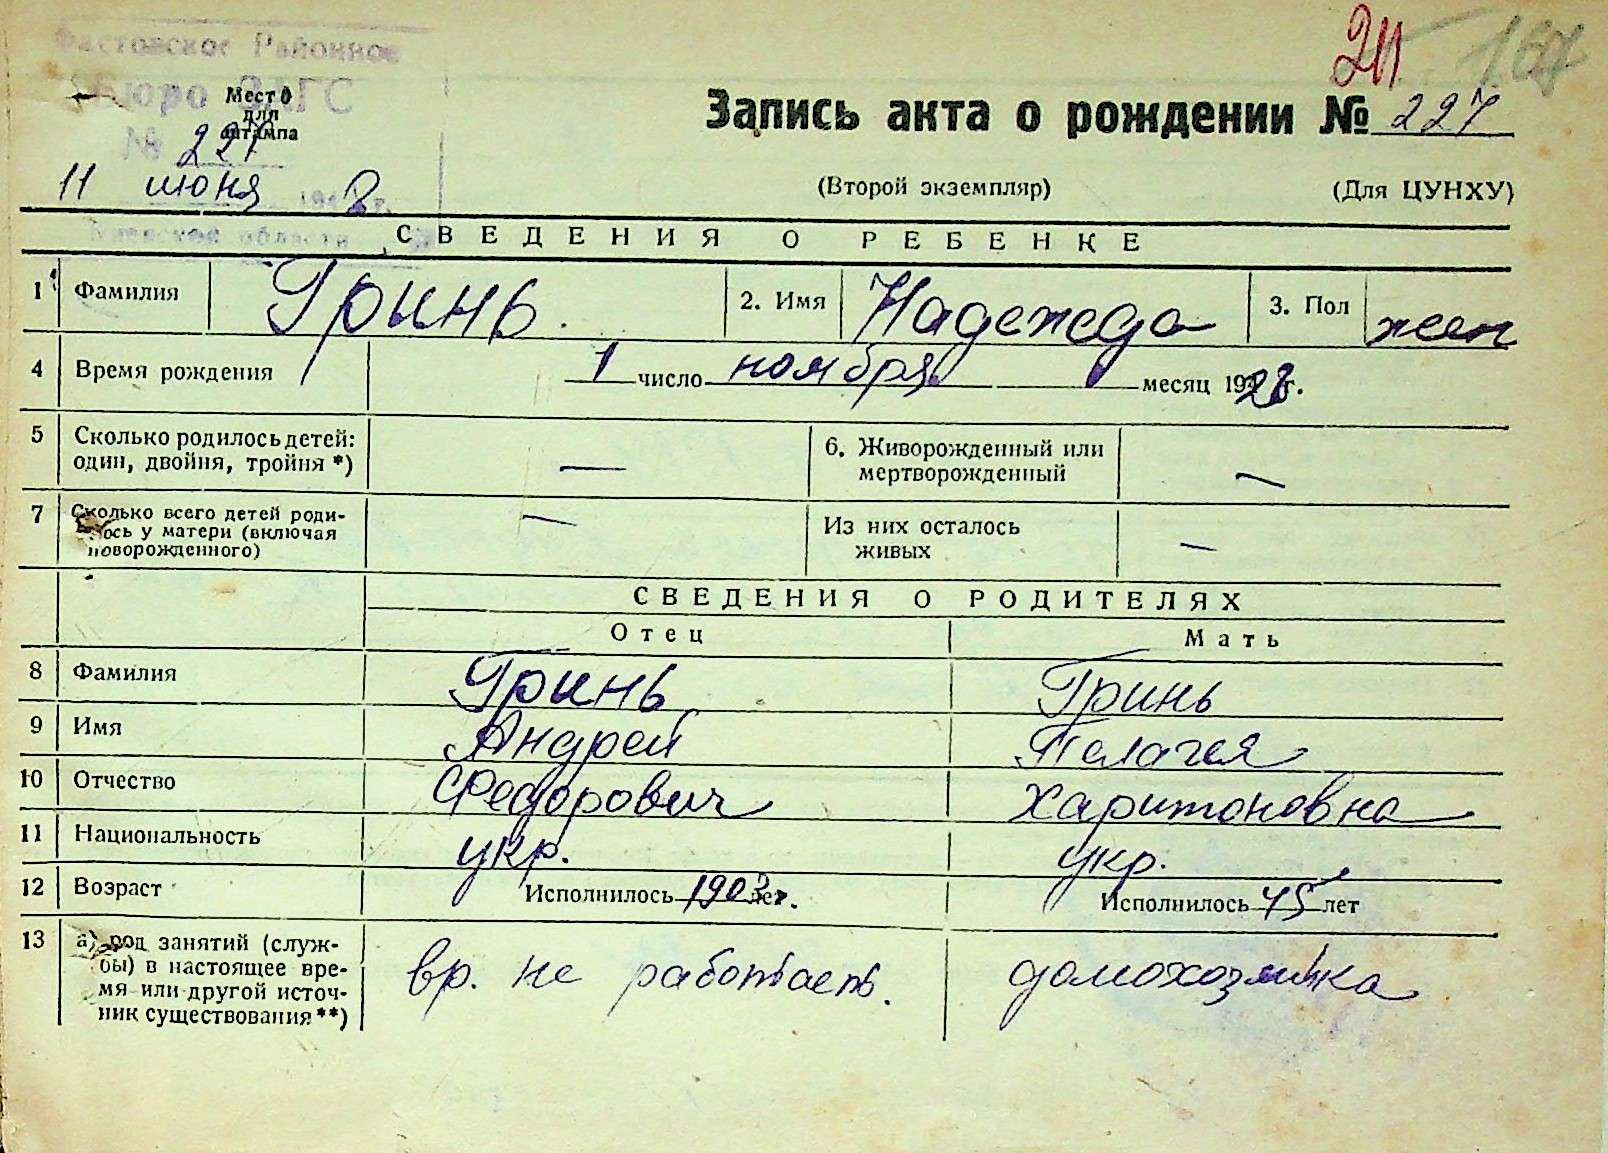 Фастовское Районное
Бюро ЗАГС
Место
для
штампа
№ 227
11 июня 194 г.
Киевской области
211 167
Запись акта о рождении № 227
(Второй экземпляр) (Для ЦУНХУ)
СВЕДЕНИЯ О РЕБЕНКЕ
1 Фамилия Гринь 2. Имя Надежда 3. Пол жен
4 Время рождения 1 число ноября месяц 1928 г.
5 Сколько родилось детей: —
один, двойня, тройня *)
6. Живорожденный или —
мертворожденный
7 Сколько всего детей роди- —
лось у матери (включая
новорожденного)
Из них осталось —
живых
СВЕДЕНИЯ О РОДИТЕЛЯХ
Отец Мать
8 Фамилия Гринь Гринь
9 Имя Андрей Пелагея
10 Отчество Федорович Харитоновна
11 Национальность укр. укр.
12 Возраст Исполнилось 1903 г. лет Исполнилось 45 лет
13 а) род занятий (служ-
бы) в настоящее вре-
мя или другой источ-
ник существования**)
вр. не работает. домохозяйка